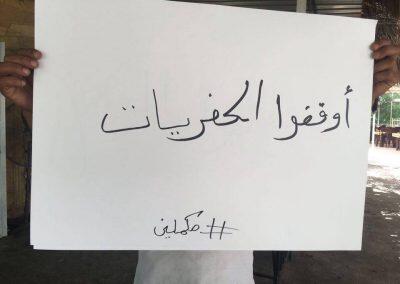 أوقفوا الحفريات
#مكملين